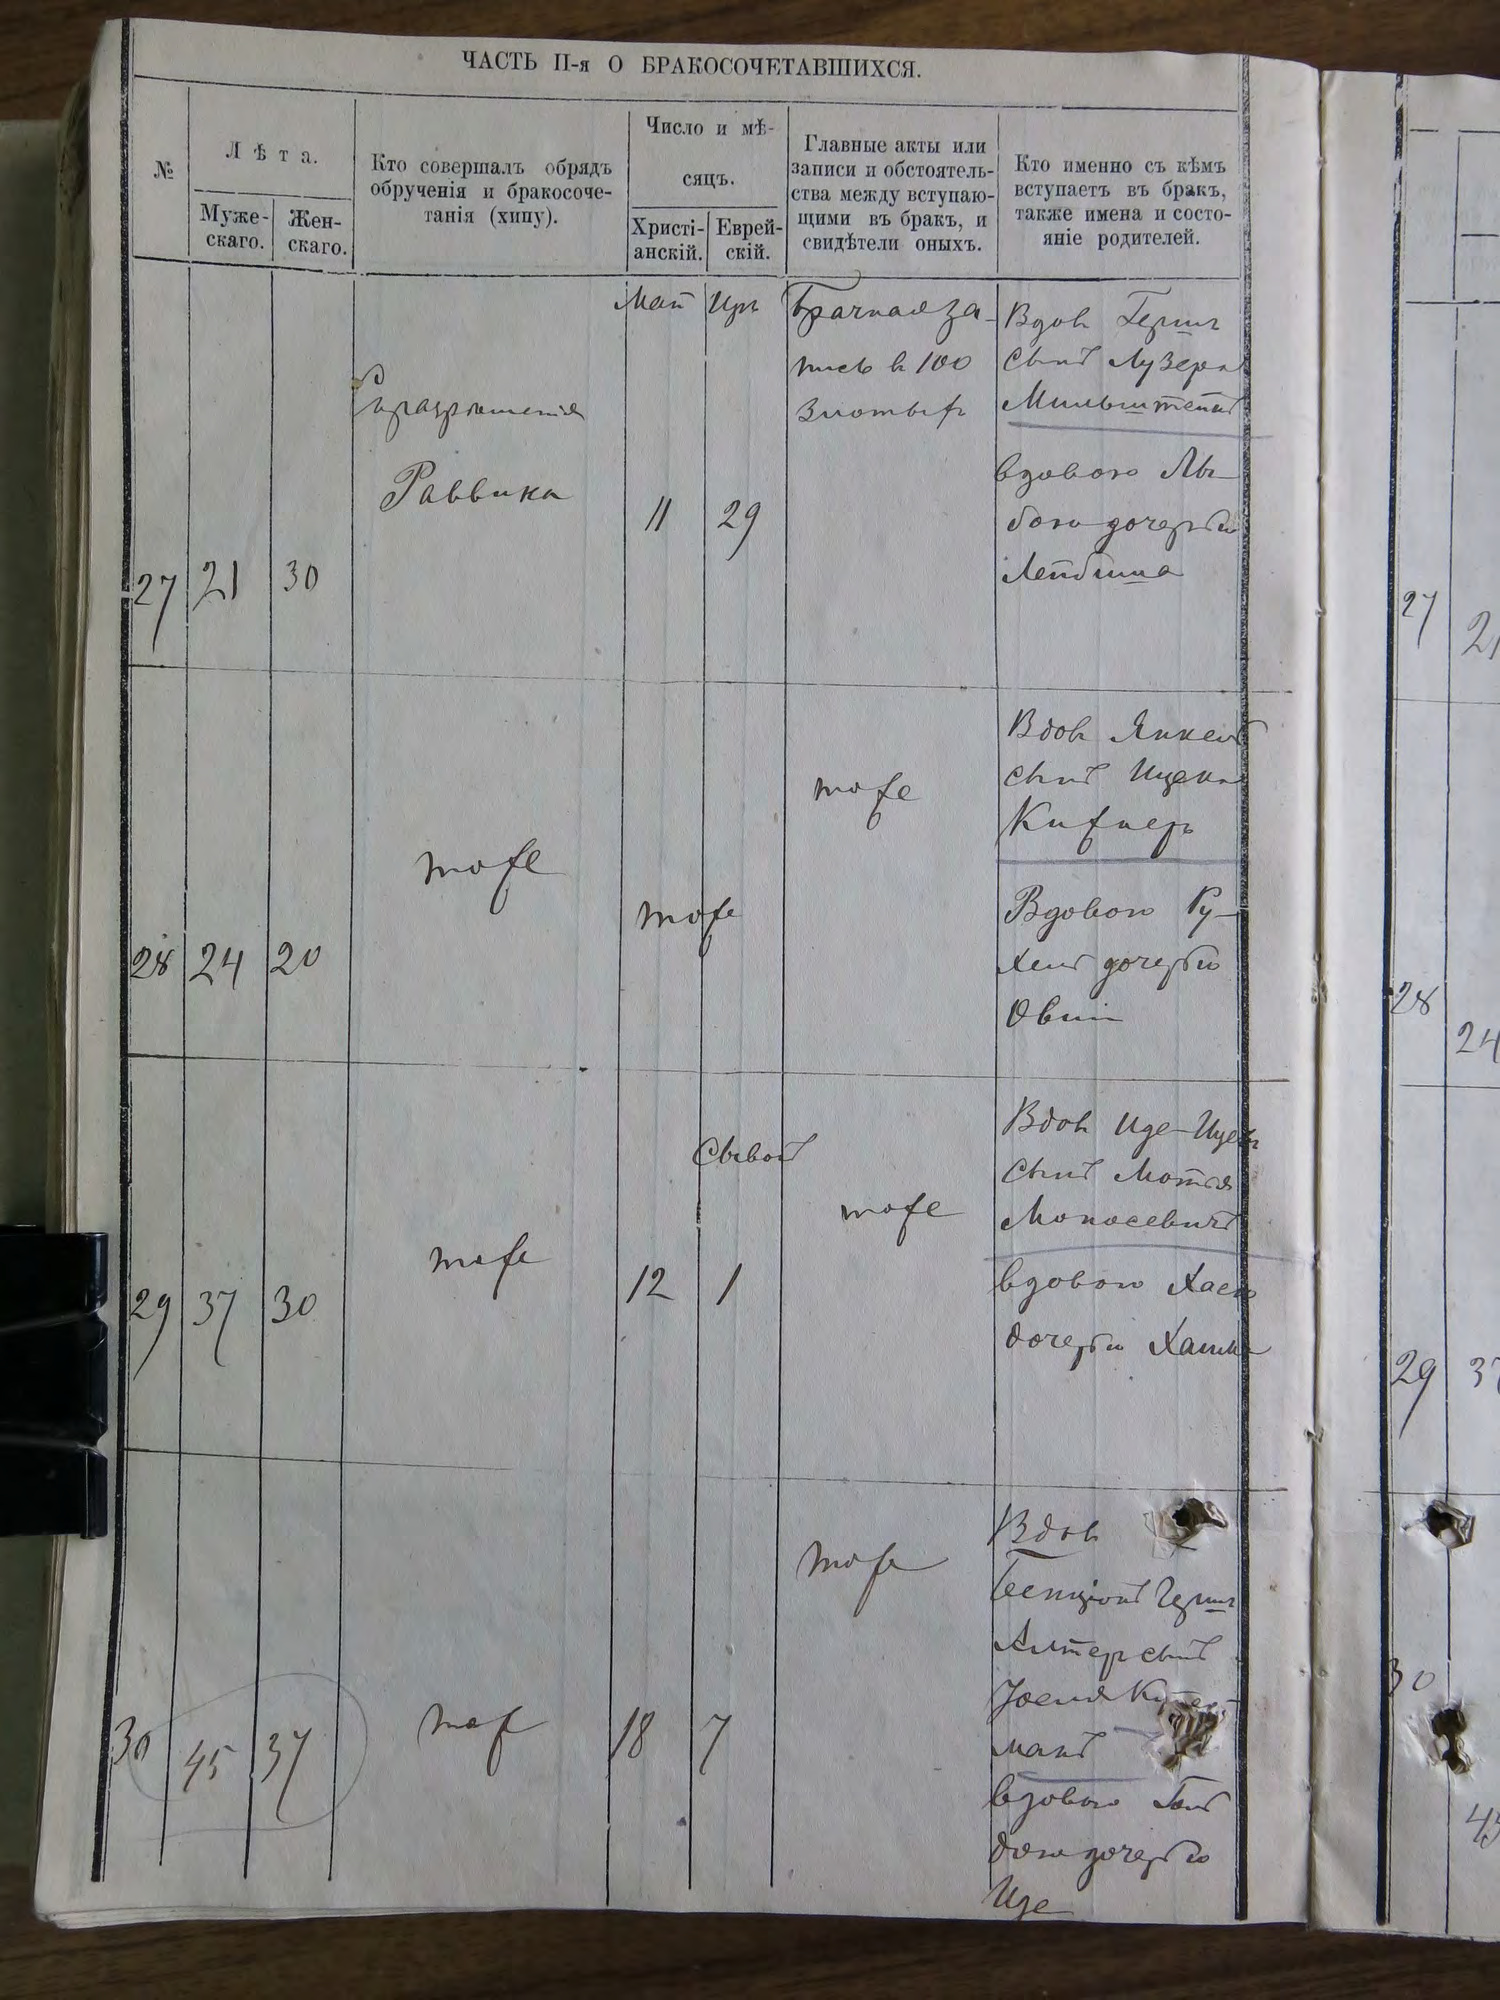 ЧАСТЬ II-я О БРАКОСОЧЕТАВШИХСЯ.
№
Лѣта.
Муже-
скаго.
Жен-
скаго.
Кто совершалъ обрядъ
обрученія и бракосоче-
танія (хипу).
Число и мѣ-
сяцъ.
Христі-
анскій.
Еврей-
скій.
Главные акты или
записи и обстоятель-
ства между вступаю-
щими въ бракъ, и
свидѣтели оныхъ.
Кто именно съ кѣмъ
вступаетъ въ бракъ,
также имена и состо-
яніе родителей.
27
21
30
Раввина
Май
11
Иръ
29
Брачная за-
пись в 100
злотыхъ
Вдов Герш
сынъ Лузера
Мильштейнъ
вдовою Лы-
бою дочерью
Лейбиша
28
24
20
тоже
тоже
тоже
Вдов Янкель
сынъ Ицека
Кижнеръ
Вдовою Ру-
хель дочерью
Овши
29
37
30
тоже
12
Сывон
1
тоже
Вдов Иде-Ицек
сынъ Мотья
Мопосевичъ
вдовою Хаею
дочерью Хаима
30
45
37
тож
18
7
тоже
Вдов
Бенціонъ Герш
Алтеръ сынъ
манъ
вдовою
дочерью
Иде
27
21
28
24
29
37
30
45